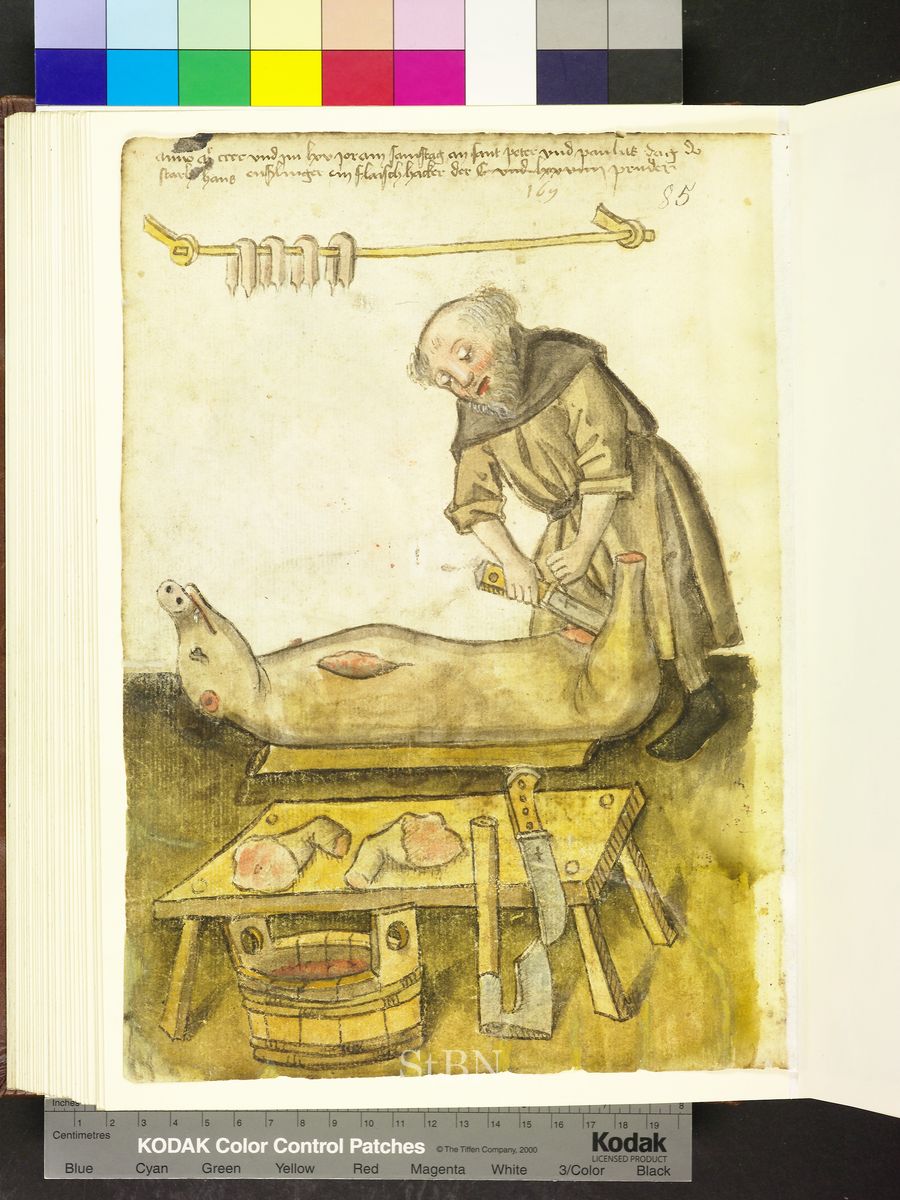 anno m cccc vnd im lxv jor am samstag an sant peter vnd paulus dag do
starb hans enßlinger ein flaischhacker der C vnd lxxviiii pruder
169
85
StBN
Inches
1 2 3 4 5 6 7 8 9 10 11 12 13 14 15 16 17 18 19
Centimetres
KODAK Color Control Patches © The Tiffen Company, 2000
Kodak
LICENSED PRODUCT
Blue Cyan Green Yellow Red Magenta White 3/Color Black